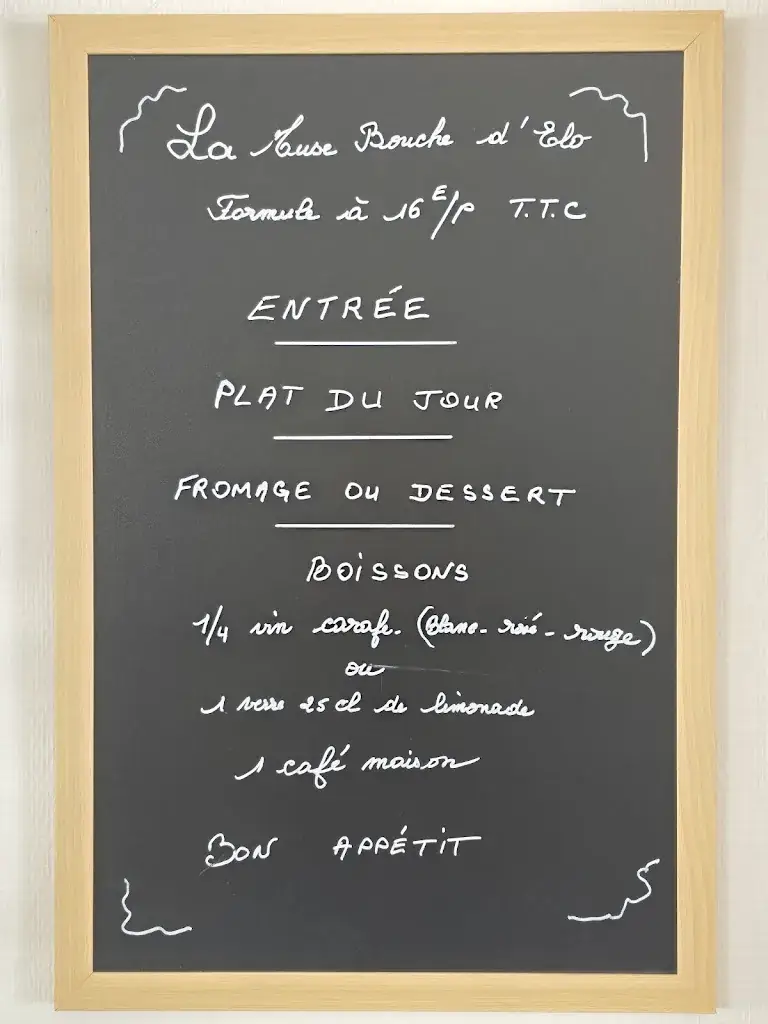 La Muse Bouche d'Elo
Formule à 16 E/P T.T.C
ENTRÉE
PLAT DU JOUR
FROMAGE OU DESSERT
BOISSONS
1/4 vin carafe. (Blanc - rosé - rouge)
ou
1 verre 25 cl de limonade
1 café maison
BON APPÉTIT